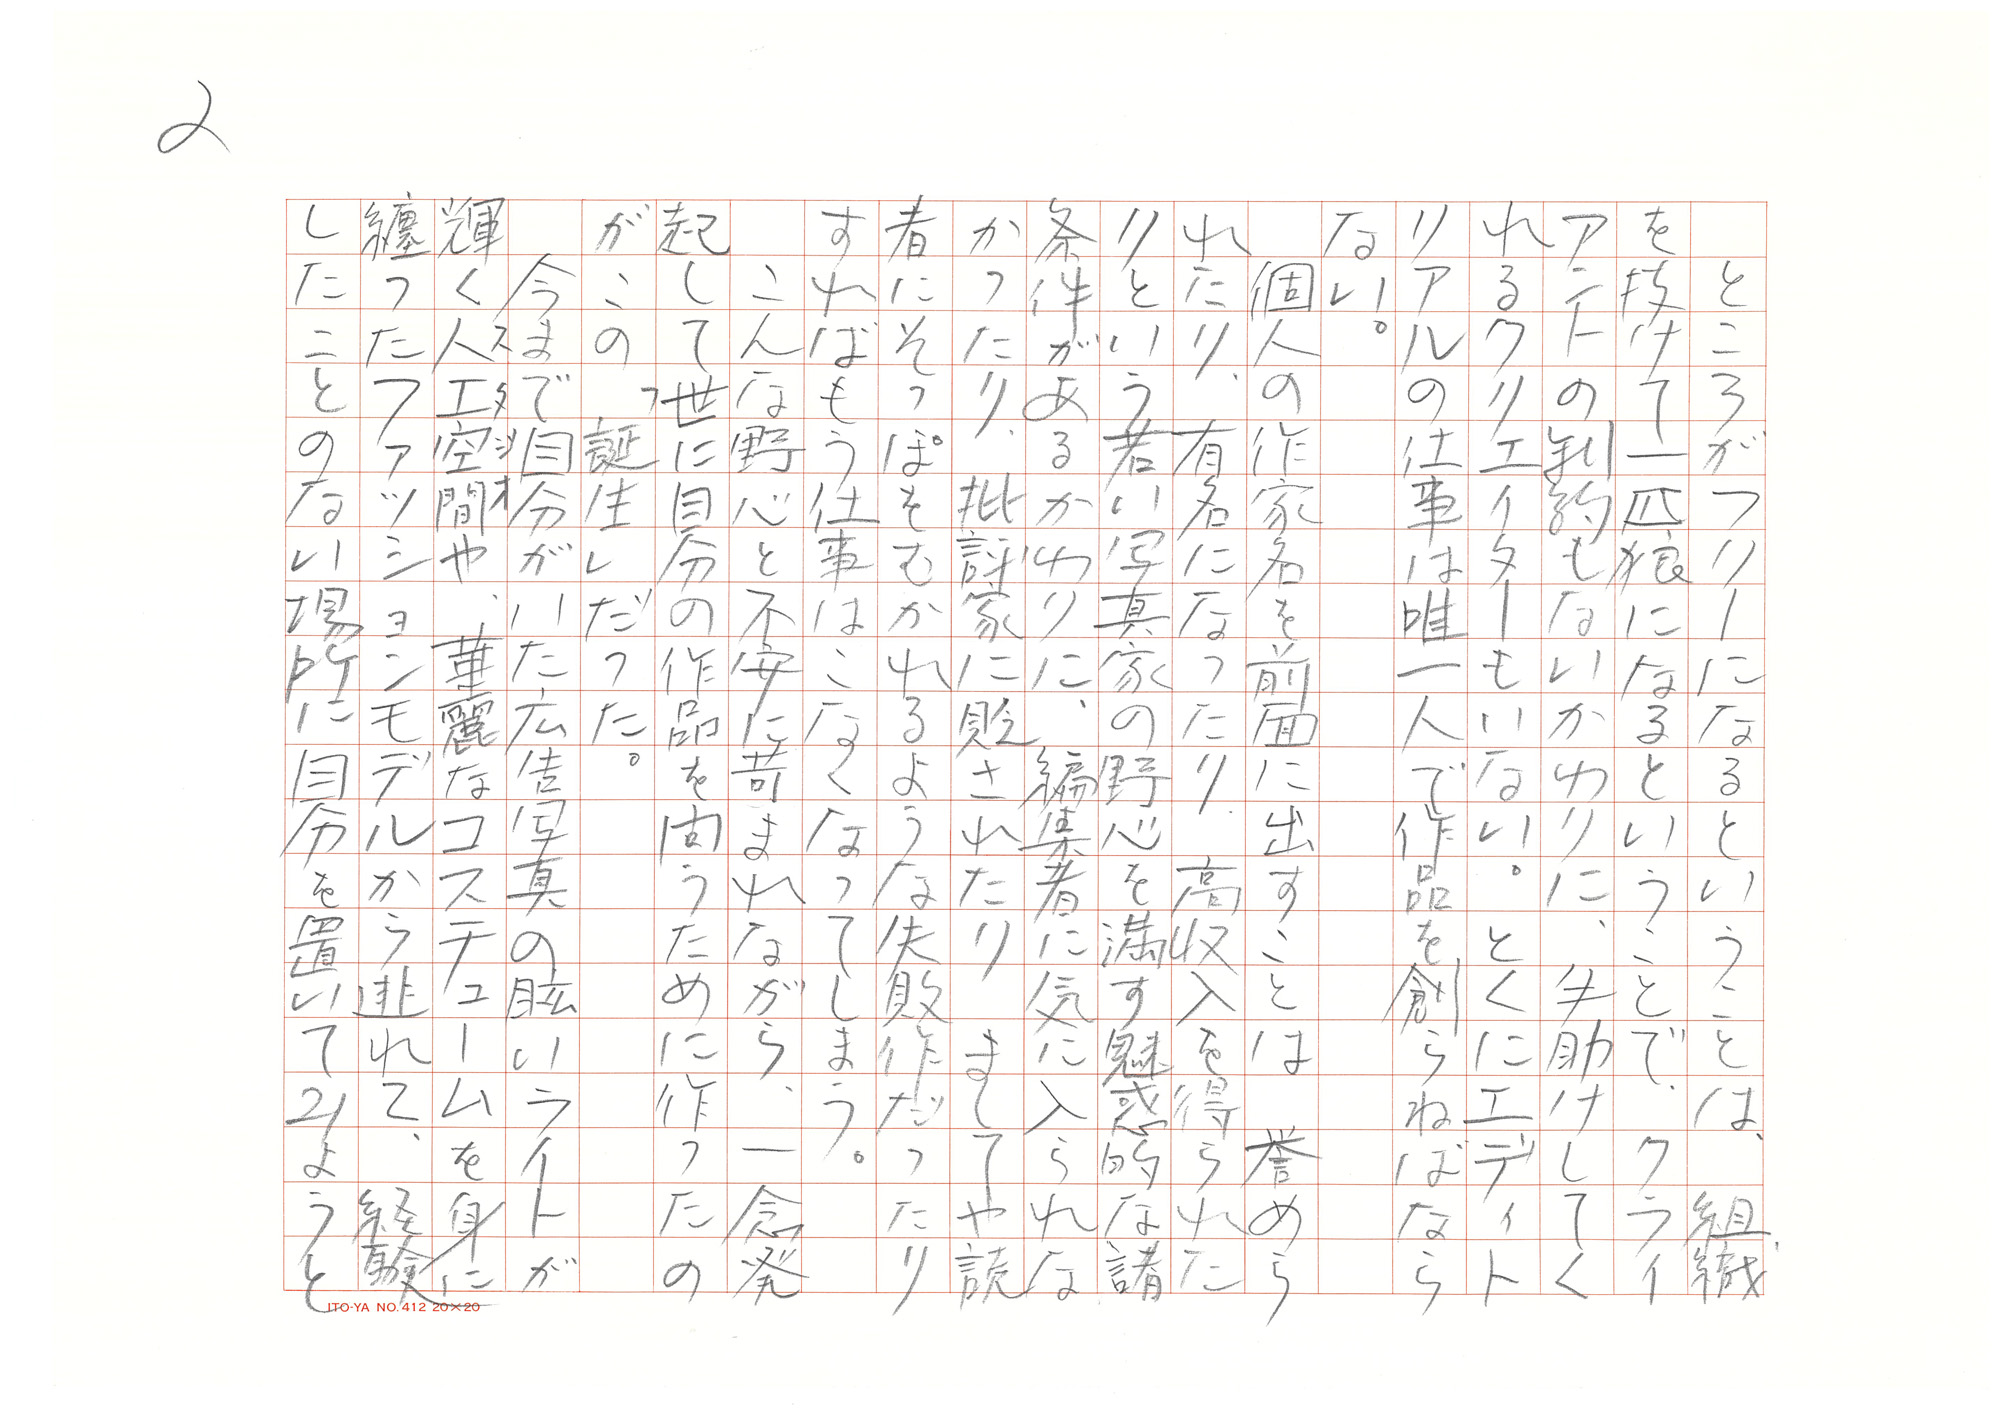 2
ところがフリーになるということは、組織
を抜けて一匹狼になるということで、クライ
アントの制約もないかわりに、手助けしてく
れるクリエイターもいない。とくにエディト
リアルの仕事は唯一人で作品を創らねばなら
ない。
個人の作家名を前面に出すことは 誉めら
れたり、有名になったり、高収入を得られた
りという若い写真家の野心を満す魅惑的な諸
条件があるかわりに、編集者に気に入られな
かったり、批評家に貶されたり ましてや読
者にそっぽをむかれるような失敗作だったり
すればもう仕事はこなくなってしまう。
こんな野心と不安に苛まれながら、一念発
起して世に自分の作品を問うために作ったの
がこの「誕生」だった。
今まで自分がいた広告写真の眩いライトが
輝く人工空間や、華麗なコスチュームを身に
スタジオ
纏ったファッションモデルから逃れて、経験
したことのない場所に自分を置いてみようと
ITO-YA NO. 412 20×20